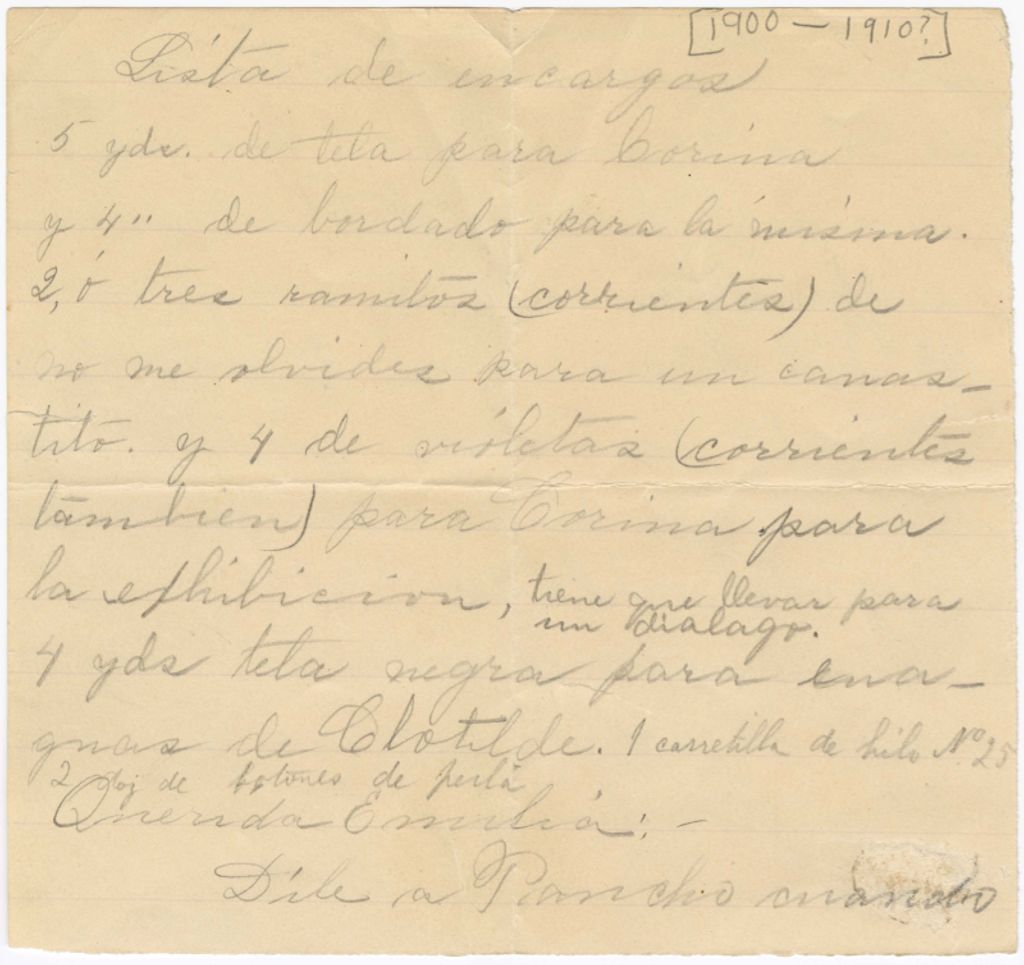 [1900 — 1910?]
Lista de encargos
5 yds. de tela para Corina
y 4 " de bordado para la misma.
2, ó tres ramitos (corrientes) de
no me olvides para un canas-
tito. y 4 de violetas (corrientes
tambien) para Corina para
la exhibicion, tiene que llevar para
un dialago.
4 yds tela negra para ena-
guas de Clotilde. 1 carretilla de hilo Nº 25
2 doz de botones de perla
Querida Emilia: -
Dile a Pancho cuando